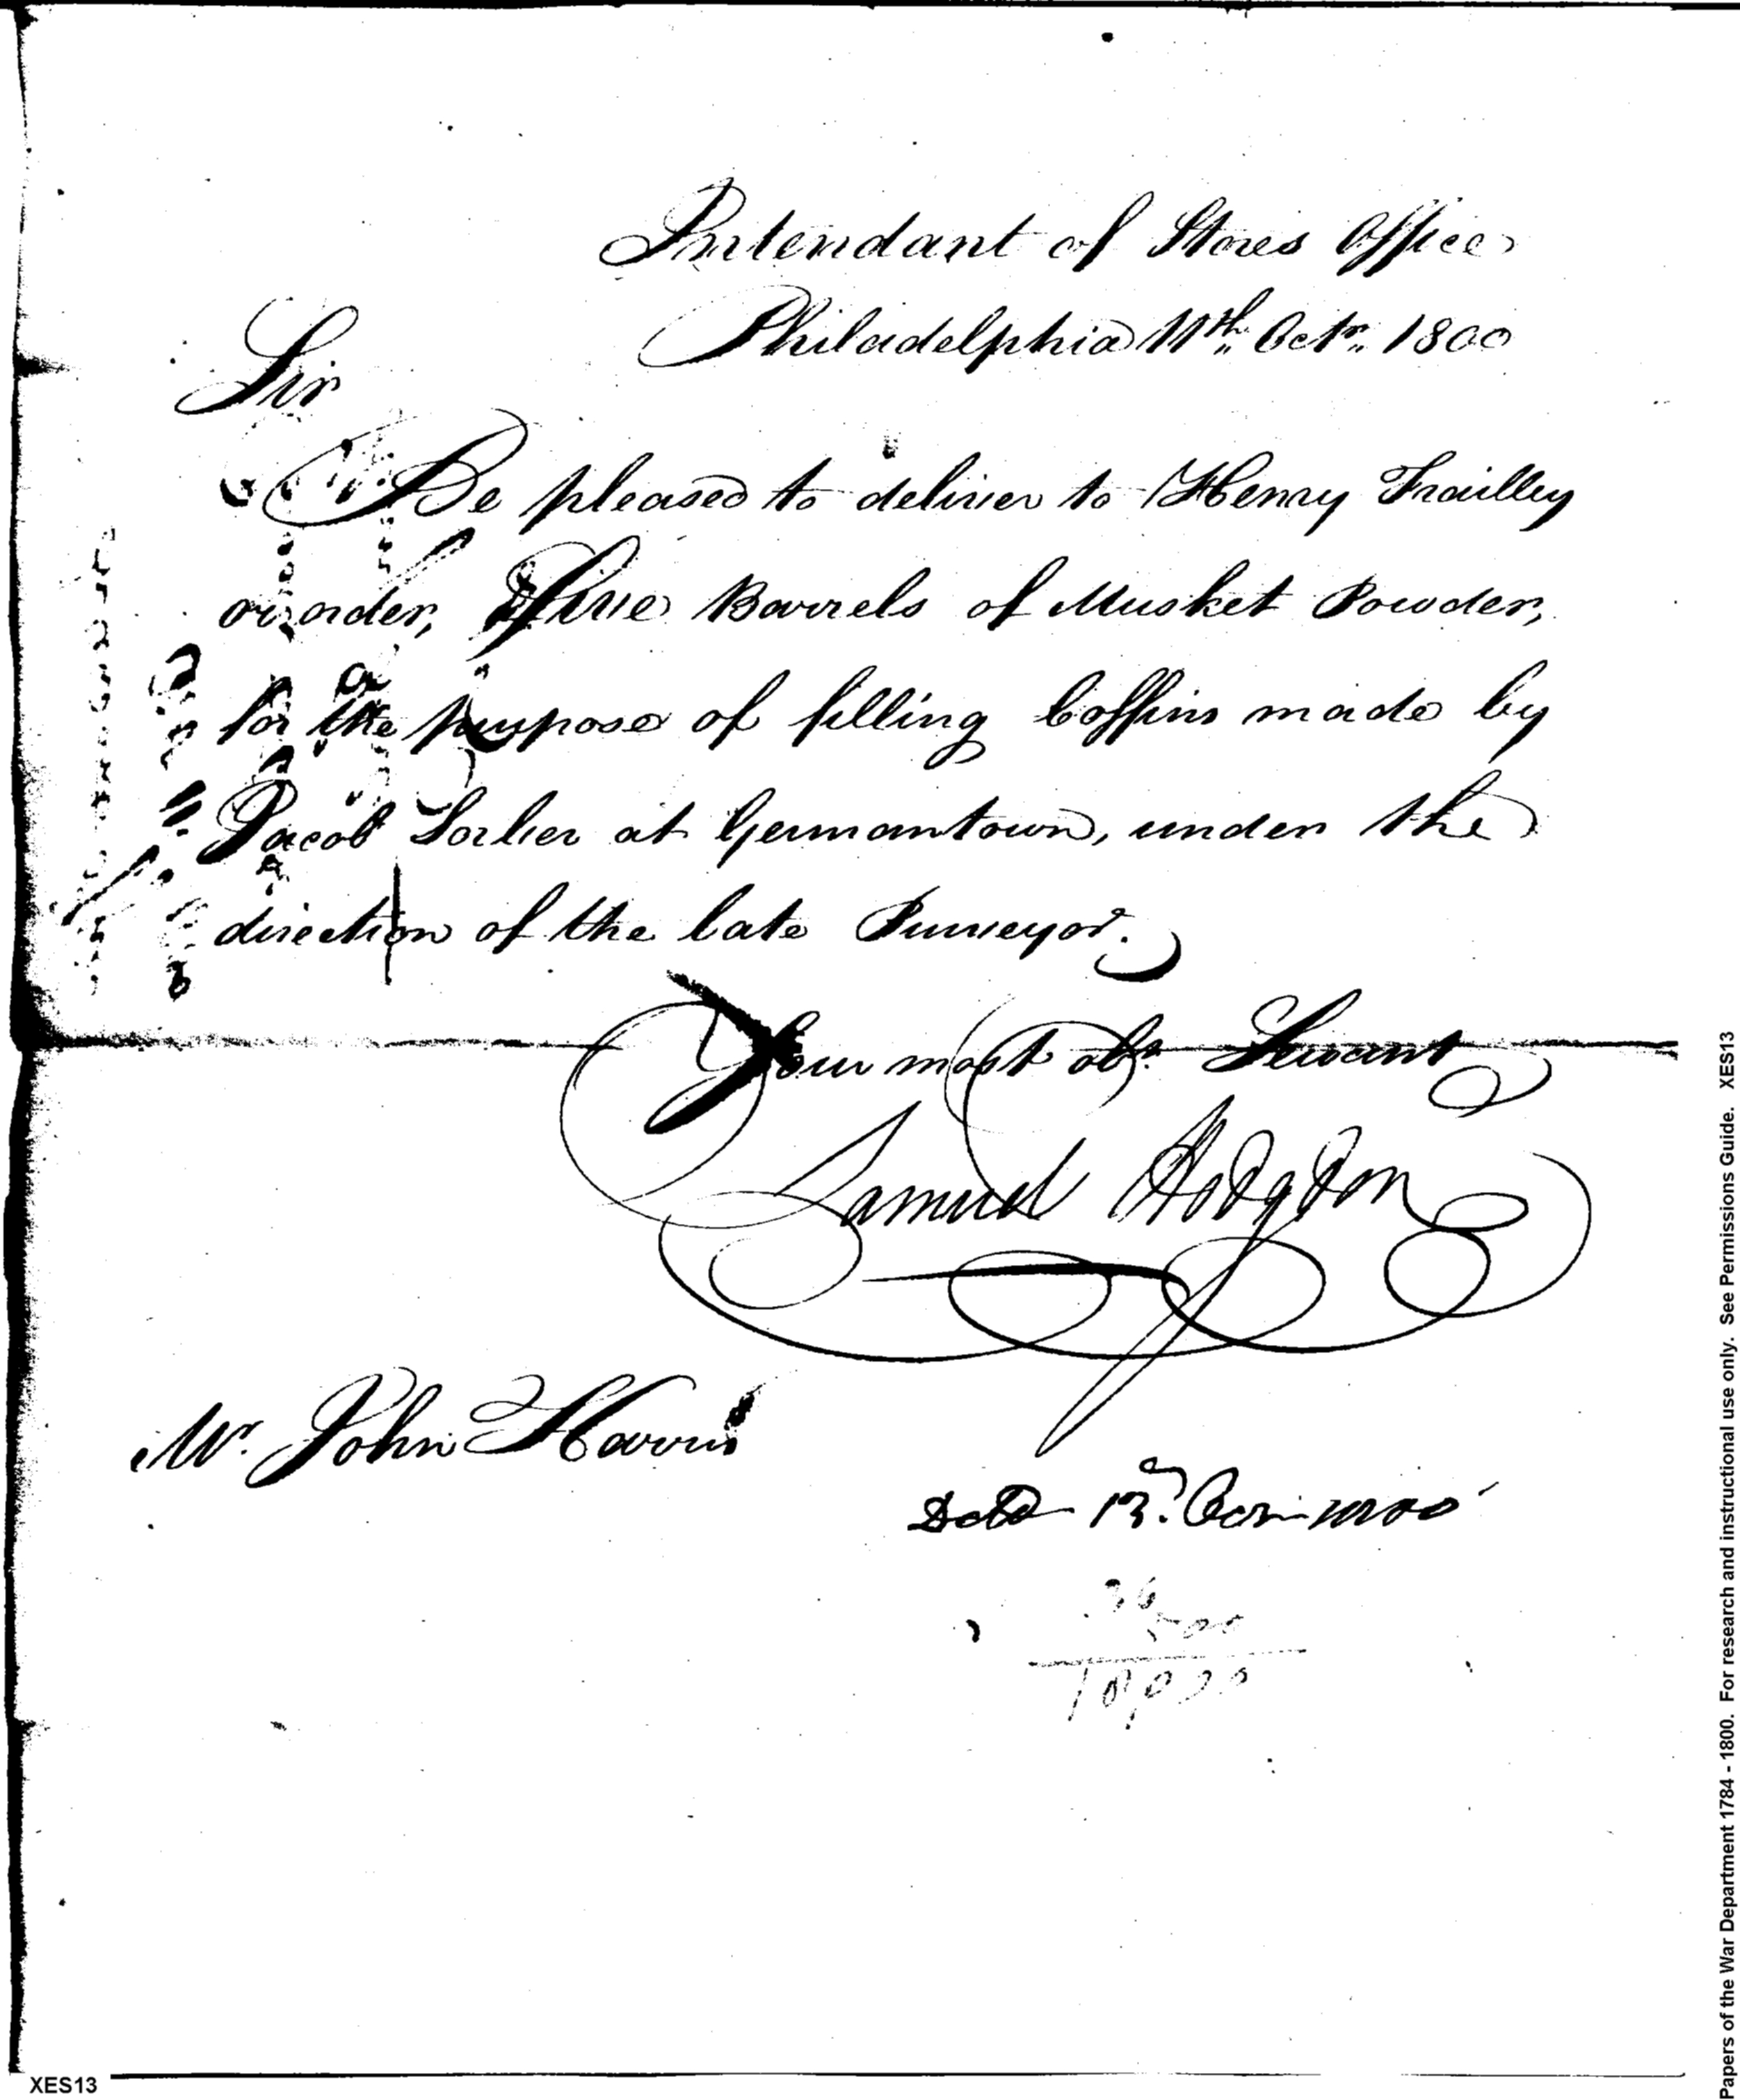 Intendant of Stores Office
Philadelphia 11th. Octr. 1800
Sir
Be pleased to deliver to Henry Frailley
or order, Five Barrels of Musket Powder,
for the purpose of filling Coffins made by
Jacob Sorber at Germantown, under the
direction of the late Purveyor.
Your most obt. Servant
Samuel Hodgdon
Mr. John Harris
36
500
18000
Papers of the War Department 1784 - 1800. For research and instructional use only. See Permissions Guide. XES13
XES13